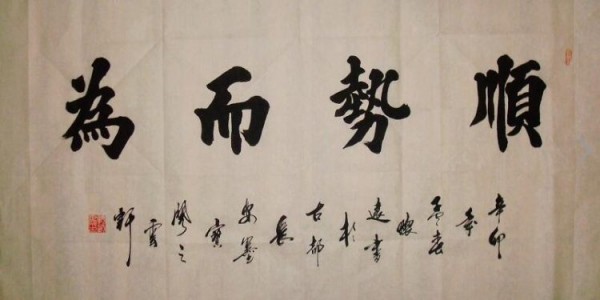 順勢而為
辛卯年孟春遠書於古都長安墨寶之雲軒